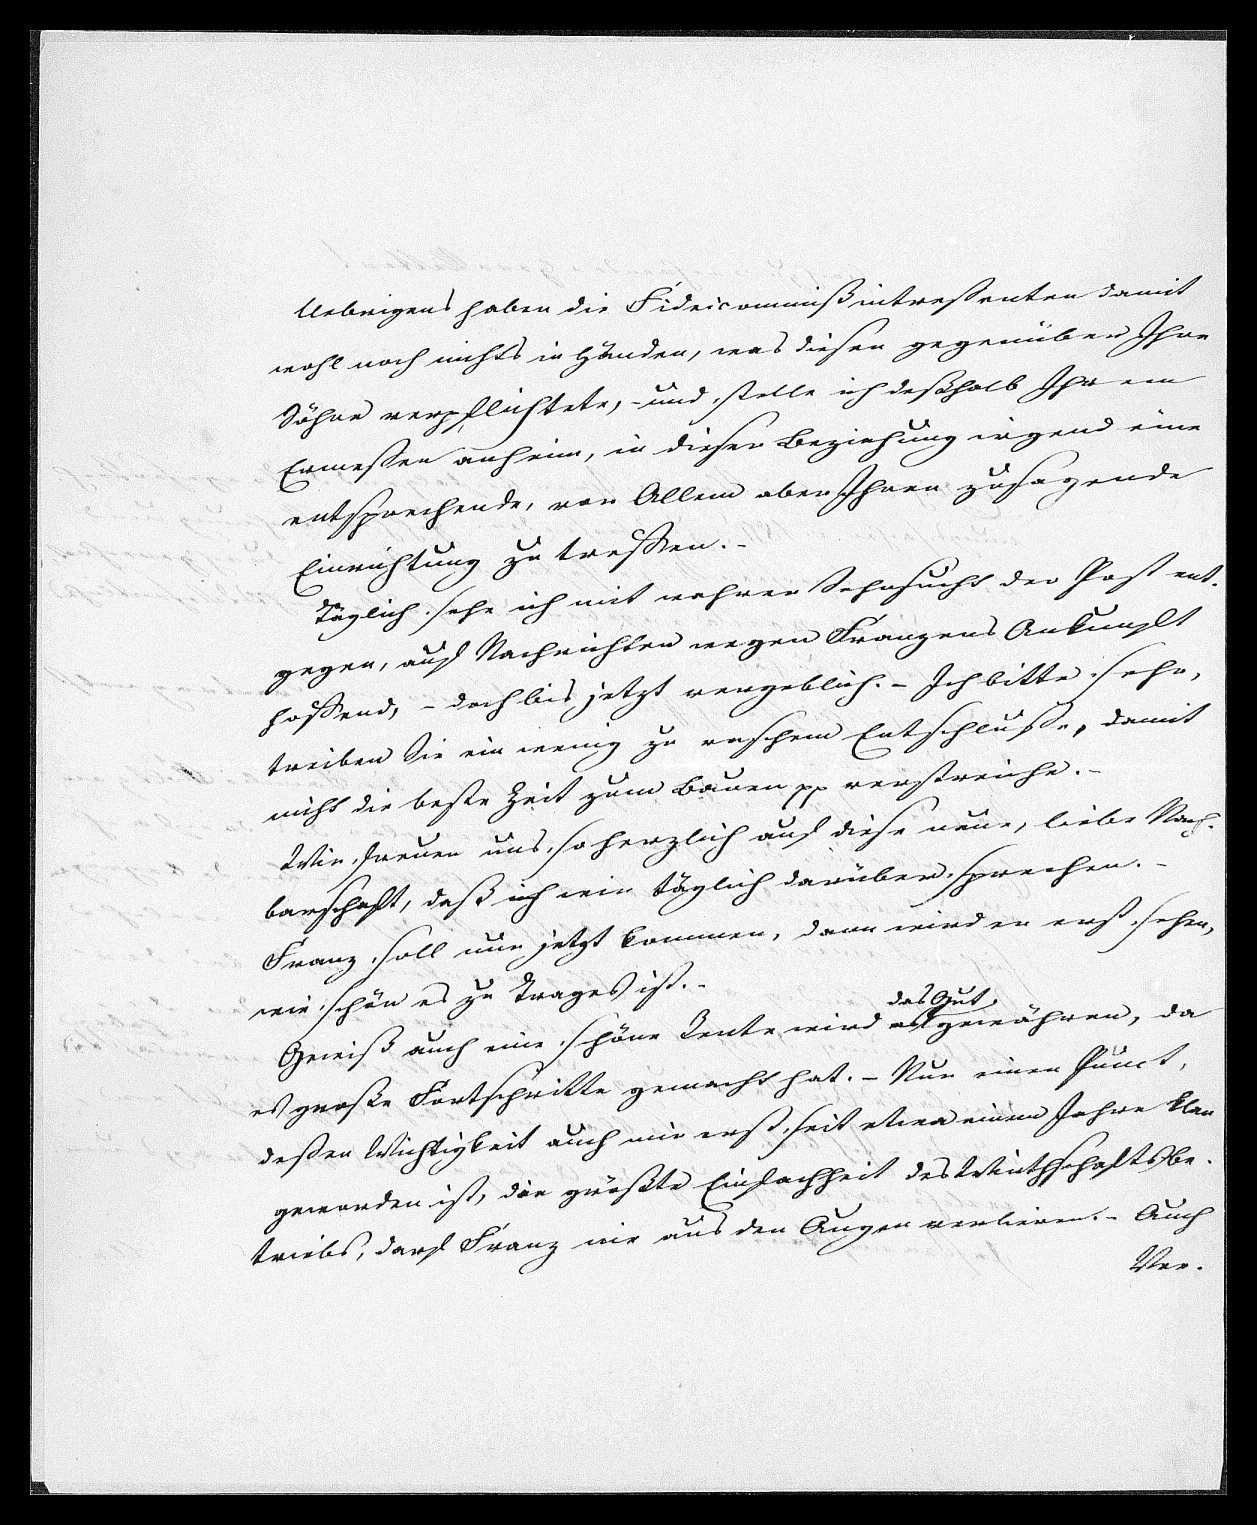 Uebrigens haben die Fideicommißintreßenten damit
wohl noch nichts in Händen, was diesen gegenüber Ihre
Söhne verpflichtete, - und stelle ich deßhalb Ihrem
Ermeßen anheim, in dieser Beziehung irgend eine
entsprechende, vor Allem aber Ihnen zusagende
Einrichtung zu treffen. -
Täglich sehe ich mit wahrer Sehnsucht der Post ent-
gegen, auf Nachrichten wegen Franzens Ankunft
hoffend, - doch bis jetzt vergeblich. - Ich bitte sehr,
treiben Sie ein wenig zu raschem Entschluße, damit
nicht die beste Zeit zum Bauen pp verstreiche. -
Wir freuen uns so herzlich auf diese neue, liebe Nach-
barschaft, daß wir täglich darüber sprechen. -
Franz soll nur jetzt kommen, dann wird er erst sehen,
wie schön es zu Trages ist. -
das Gut
Gewiß auch eine schöne Rente wird es gewähren, da
es große Fortschritte gemacht hat. - Nur einen Punct,
deßen Wichtigkeit auch mir erst seit etwa einem Jahre klar
geworden ist, die größte Einfachheit des Wirthschaftsbe-
triebs, darf Franz nie aus den Augen verlieren. - Auch
Ver-